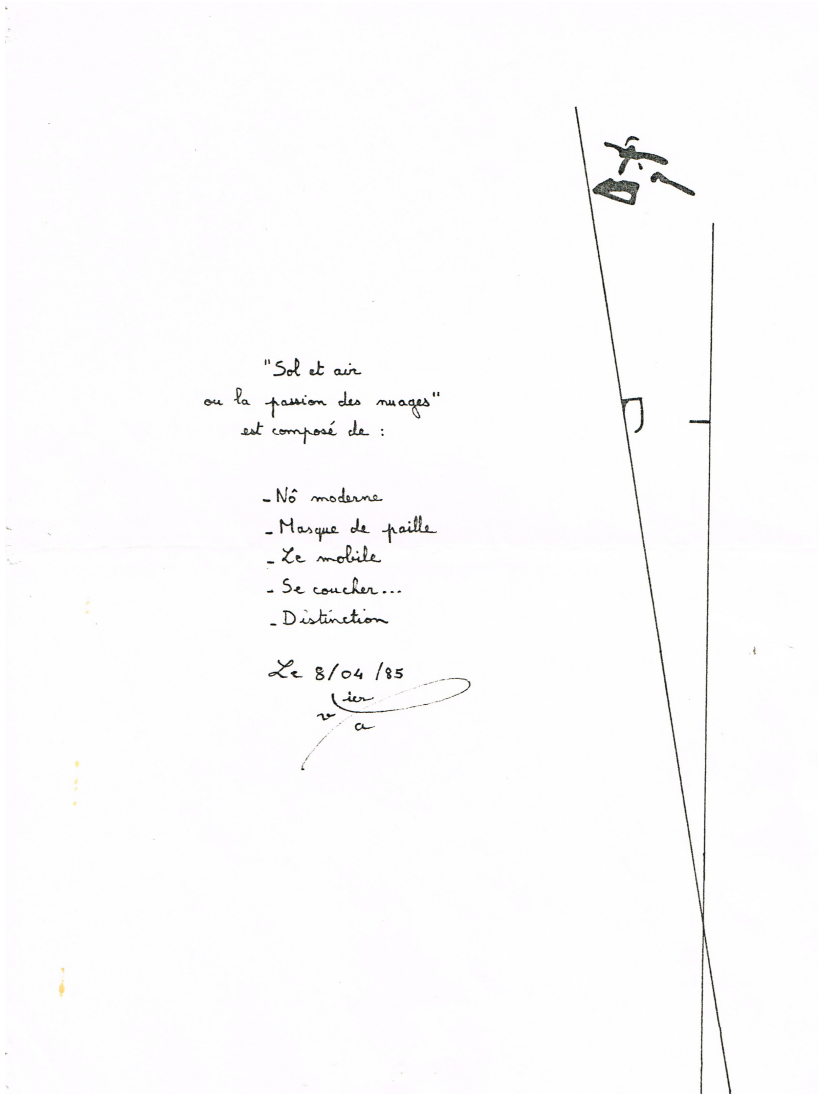 "Sol et air
ou la passion des nuages"
est composé de :
- Nô moderne
- Masque de paille
- Le mobile
- Se coucher...
- Distinction
Le 8/04/85